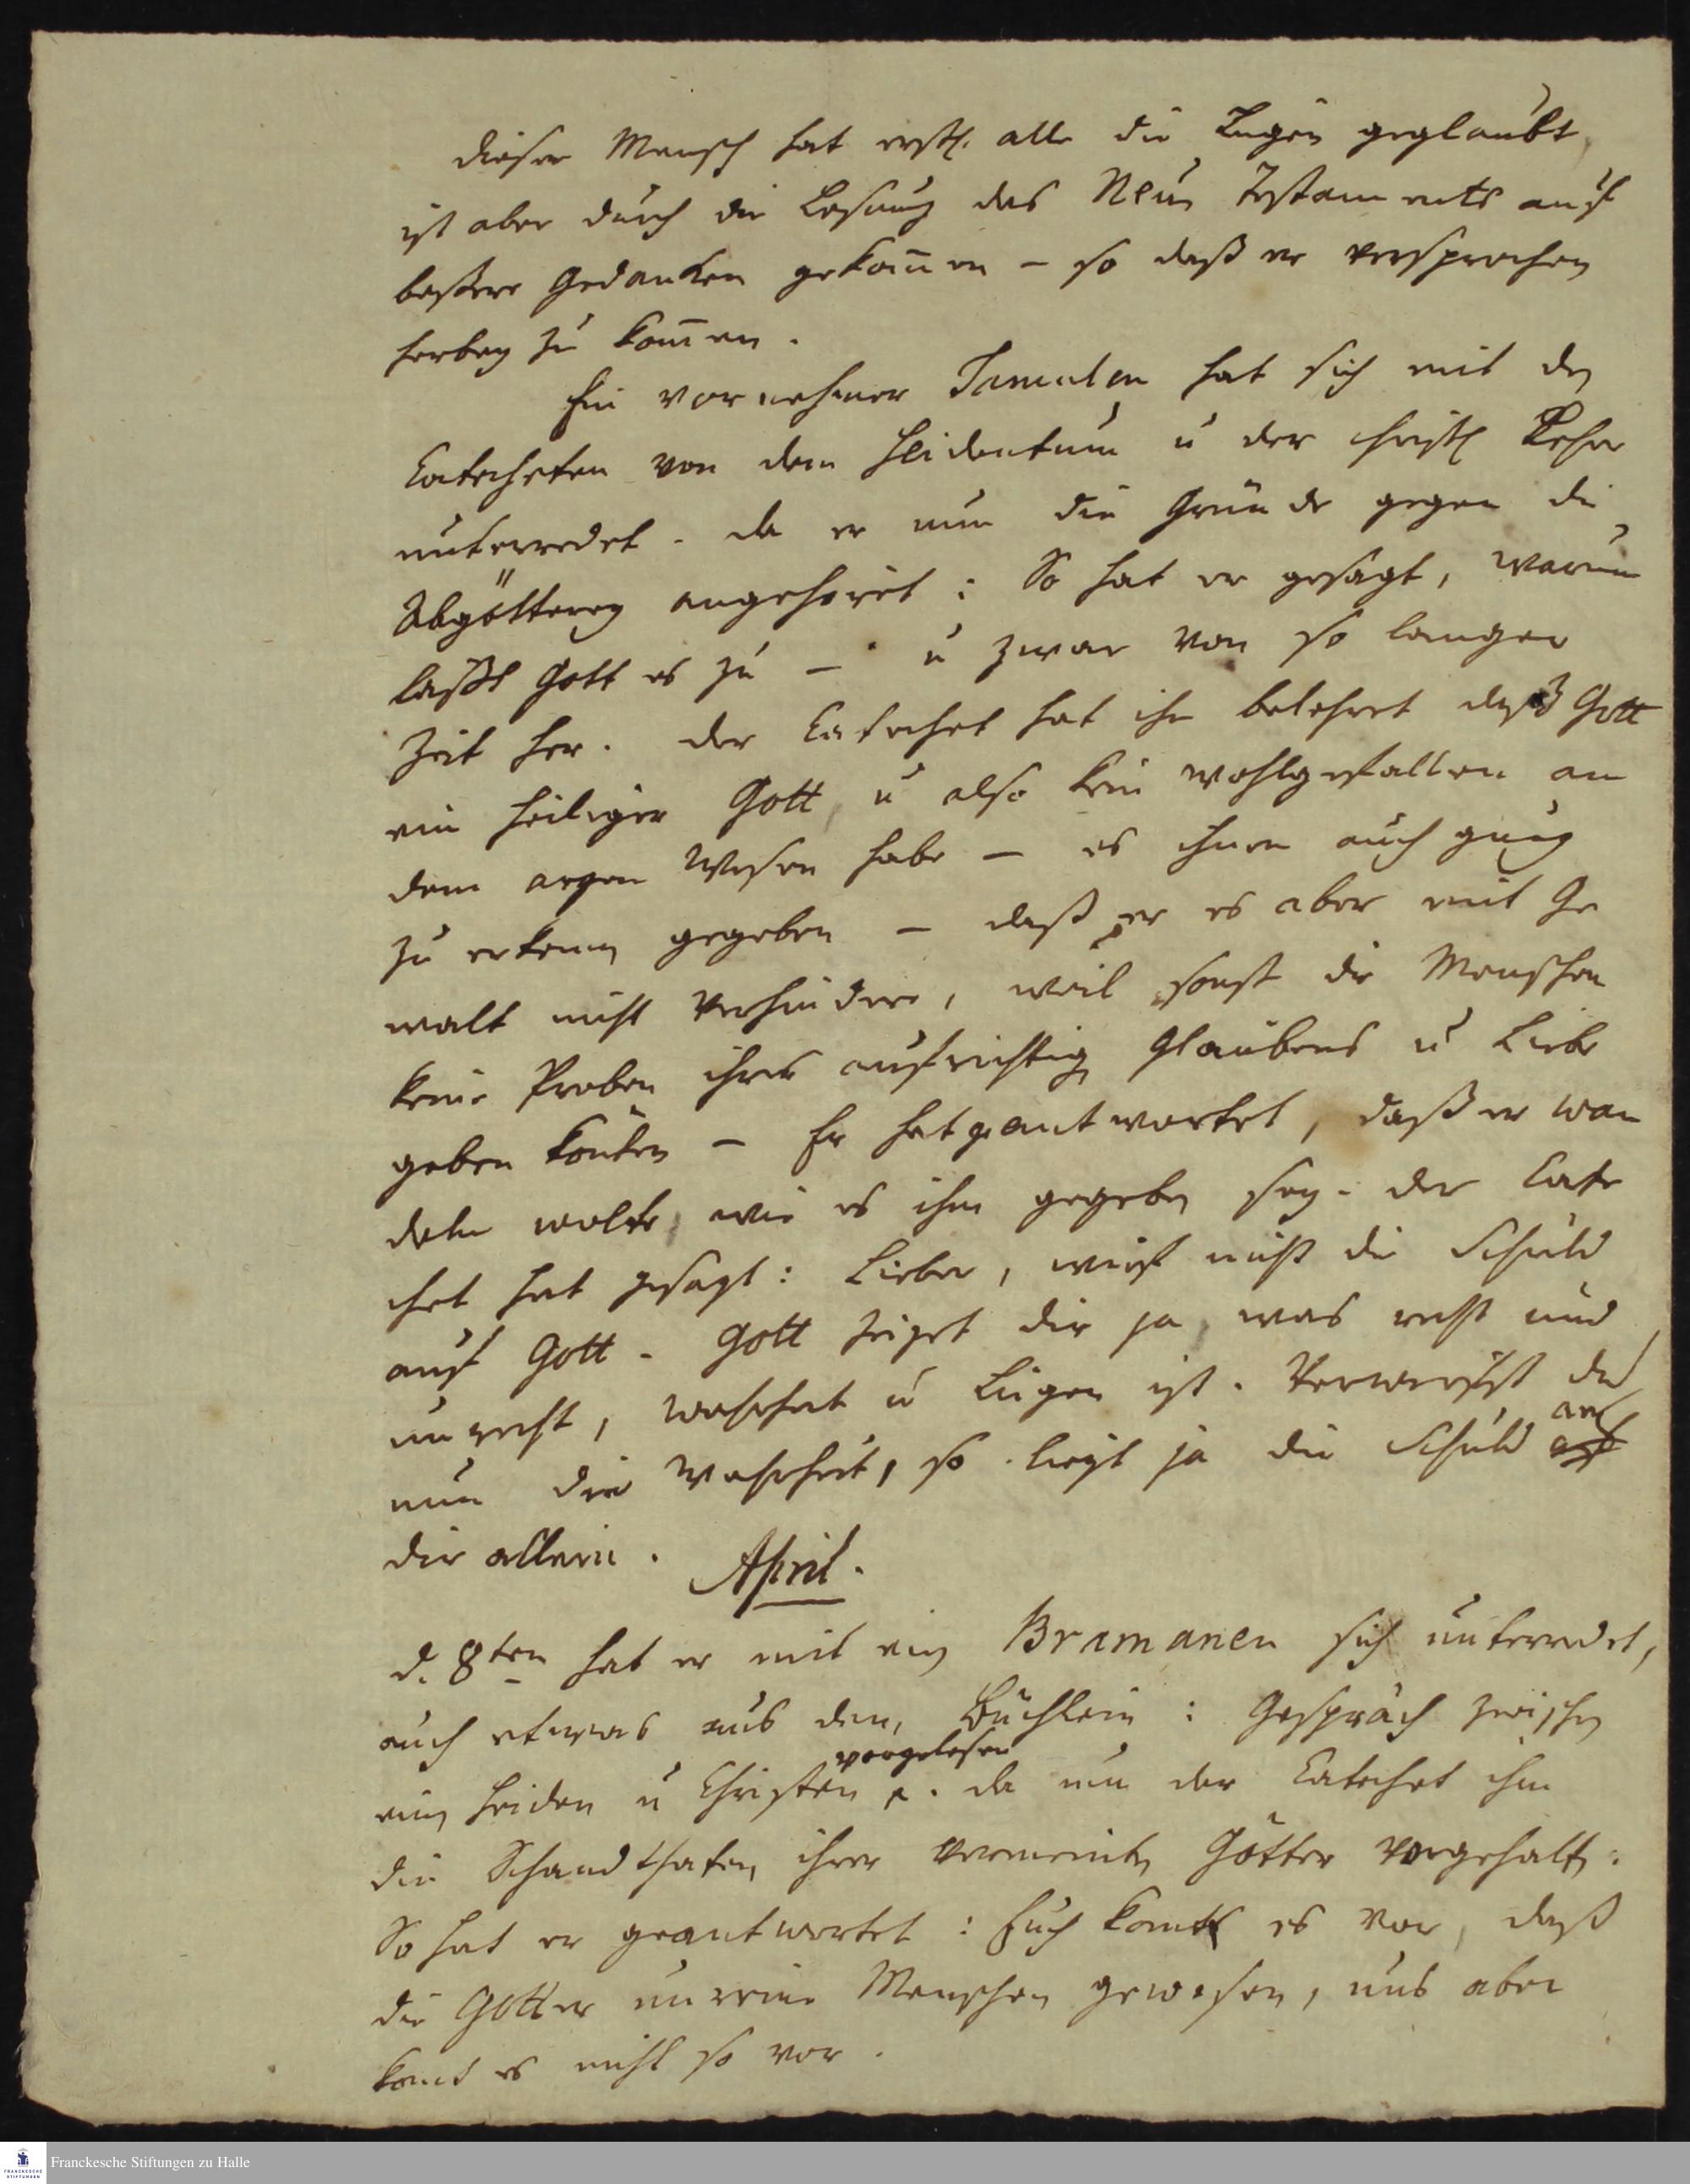 dieser Mensch hat erstl. alle die Lugen geglaubt,
ist aber durch die Lesung des Neuen Testaments auf
bessere Gedanken gekom̄en – so daß er versprochen
herbey zu kom̄en.
Ein vornehmer Tamulen hat sich mit den
Catecheten von dem Heidentum u der christl Lehre
unterredet. da er nun die Gründe gegen die
Abgötterey angehöret: So hat er gesagt, warum
laßt Gott es zu – u zwar von so langer
Zeit her. der Catechet hat ihn belehret daß Gott
ein heiliger Gott, u also kein wohlgefallen an
dem argen Wesen habe – es ihnen auch gnug
zu erkennen gegeben – daß er es aber mit Ge
walt nicht verhindere, weil sonst die Menschen
keine Proben ihres aufrichtigen Glaubens u Liebe
geben könten – Er hat geantwortet, daß er wan
deln wolte, wie es ihm gegeben sey. der Cate
chet hat gesagt: Lieber, wirf nicht die Schuld
auf Gott. Gott zeiget dir ja, was recht und
unrecht, wahrheit u Lügen ist. Verwirfst du
nun die Wahrheit, so liegt ja die Schuld auf
dir allein.
April.
d. 8ten hat er mit einen Bramanen sich unterredet,
auch etwas aus dem Büchlein: Gespräch zwischen
vorgelesen
einen Heiden u Christen. da nun der Catechet ihm
die Schandthaten ihrer vermeinten Götter vorgehalten:
So hat er geantwortet: Euch komt es vor, daß
die Götter unreine Menschen gewesen, uns aber
komt es nicht so vor.
Franckesche Stiftungen zu Halle
FRANCKESCHE
STIFTUNGEN